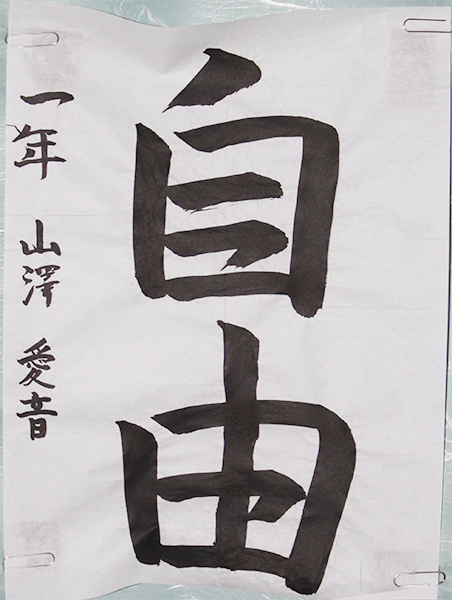 自由
一年 山澤 愛音